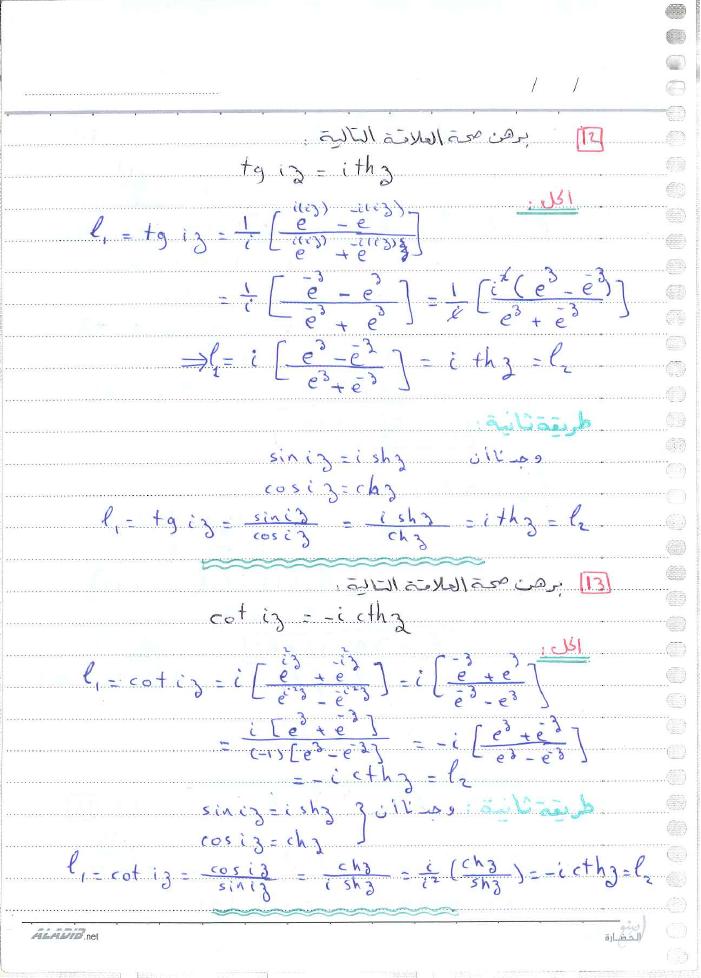 / /
12 برهن صحة العلاقة التالية :
tg iz = i th z
الحل :
l₁ = tg iz = 1/i [ (e^{i(iz)} - e^{-i(iz)}) / (e^{i(iz)} + e^{-i(iz)}) ]
= 1/i [ (e^{-z} - e^{z}) / (e^{-z} + e^{z}) ] = 1/i [ i²(e^{z} - e^{-z}) / (e^{z} + e^{-z}) ]
⇒ l₁ = i [ (e^{z} - e^{-z}) / (e^{z} + e^{-z}) ] = i th z = l₂
طريقة ثانية :
وجدنا أن sin iz = i sh z
cos iz = ch z
l₁ = tg iz = sin iz / cos iz = i sh z / ch z = i th z = l₂
13 برهن صحة العلاقة التالية :
cot iz = -i cth z
الحل :
l₁ = cot iz = i [ (e^{i²z} + e^{-i²z}) / (e^{i²z} - e^{-i²z}) ] = i [ (e^{-z} + e^{z}) / (e^{-z} - e^{z}) ]
= i [e^{z} + e^{-z}] / (-1)[e^{z} - e^{-z}] = -i [ (e^{z} + e^{-z}) / (e^{z} - e^{-z}) ]
= -i cth z = l₂
طريقة ثانية : وجدنا أن } sin iz = i sh z
cos iz = ch z
l₁ = cot iz = cos iz / sin iz = ch z / i sh z = i/i² (ch z / sh z) = -i cth z = l₂
ALADIB.net
الحضارة